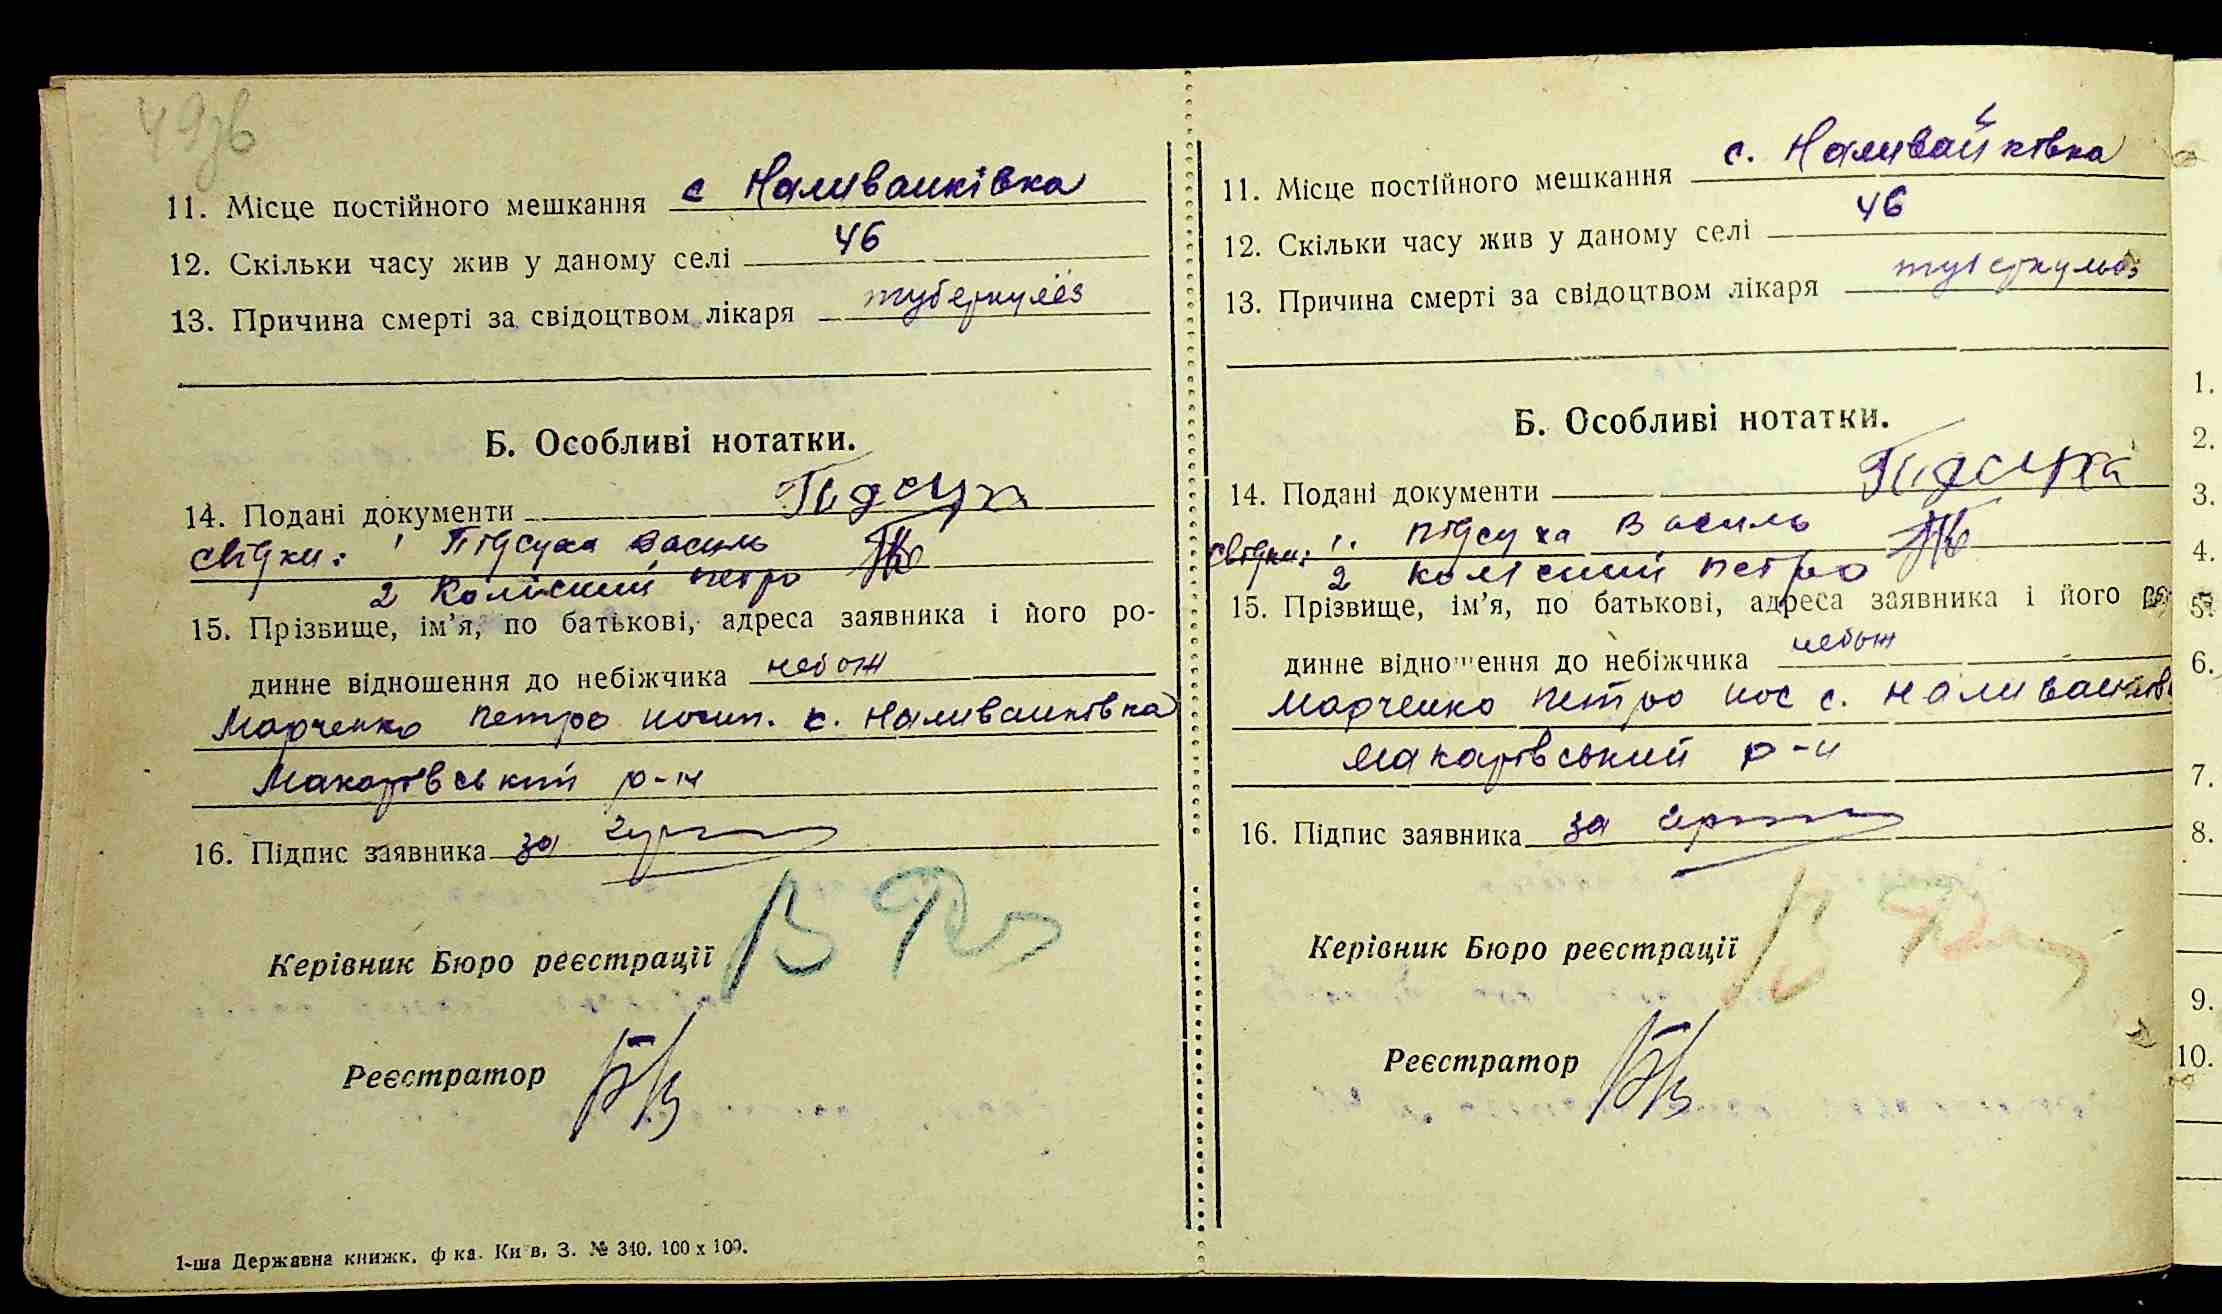 49зв
11. Місце постійного мешкання с Наливаиківка
12. Скільки часу жив у даному селі 46
13. Причина смерті за свідоцтвом лікаря туберкулёз
Б. Особливі нотатки.
14. Подані документи Підсуха
свідки: 1 Підсуха Василь
2 Колісний Петро
15. Прізвище, ім’я, по батькові, адреса заявника і його ро-
динне відношення до небіжчика небож
Марченко Петро с. Наливаиківка
Макарівський р-н
16. Підпис заявника за
Керівник Бюро реєстрації
Реєстратор
1-ша Державна книжк. ф ка. Ки в, З. № 340. 100 х 100.
11. Місце постійного мешкання с. Наливайківка
12. Скільки часу жив у даному селі 46
13. Причина смерті за свідоцтвом лікаря туберкульоз
Б. Особливі нотатки.
14. Подані документи Підсуха
свідки: 1. Підсуха Василь
2 Колісний Петро
15. Прізвище, ім’я, по батькові, адреса заявника і його ро-
динне відношення до небіжчика небож
Марченко Петро пос с. Наливаиків
Макарівський р-н
16. Підпис заявника за
Керівник Бюро реєстрації
Реєстратор
1.
2.
3.
4.
5.
6.
7.
8.
9.
10.